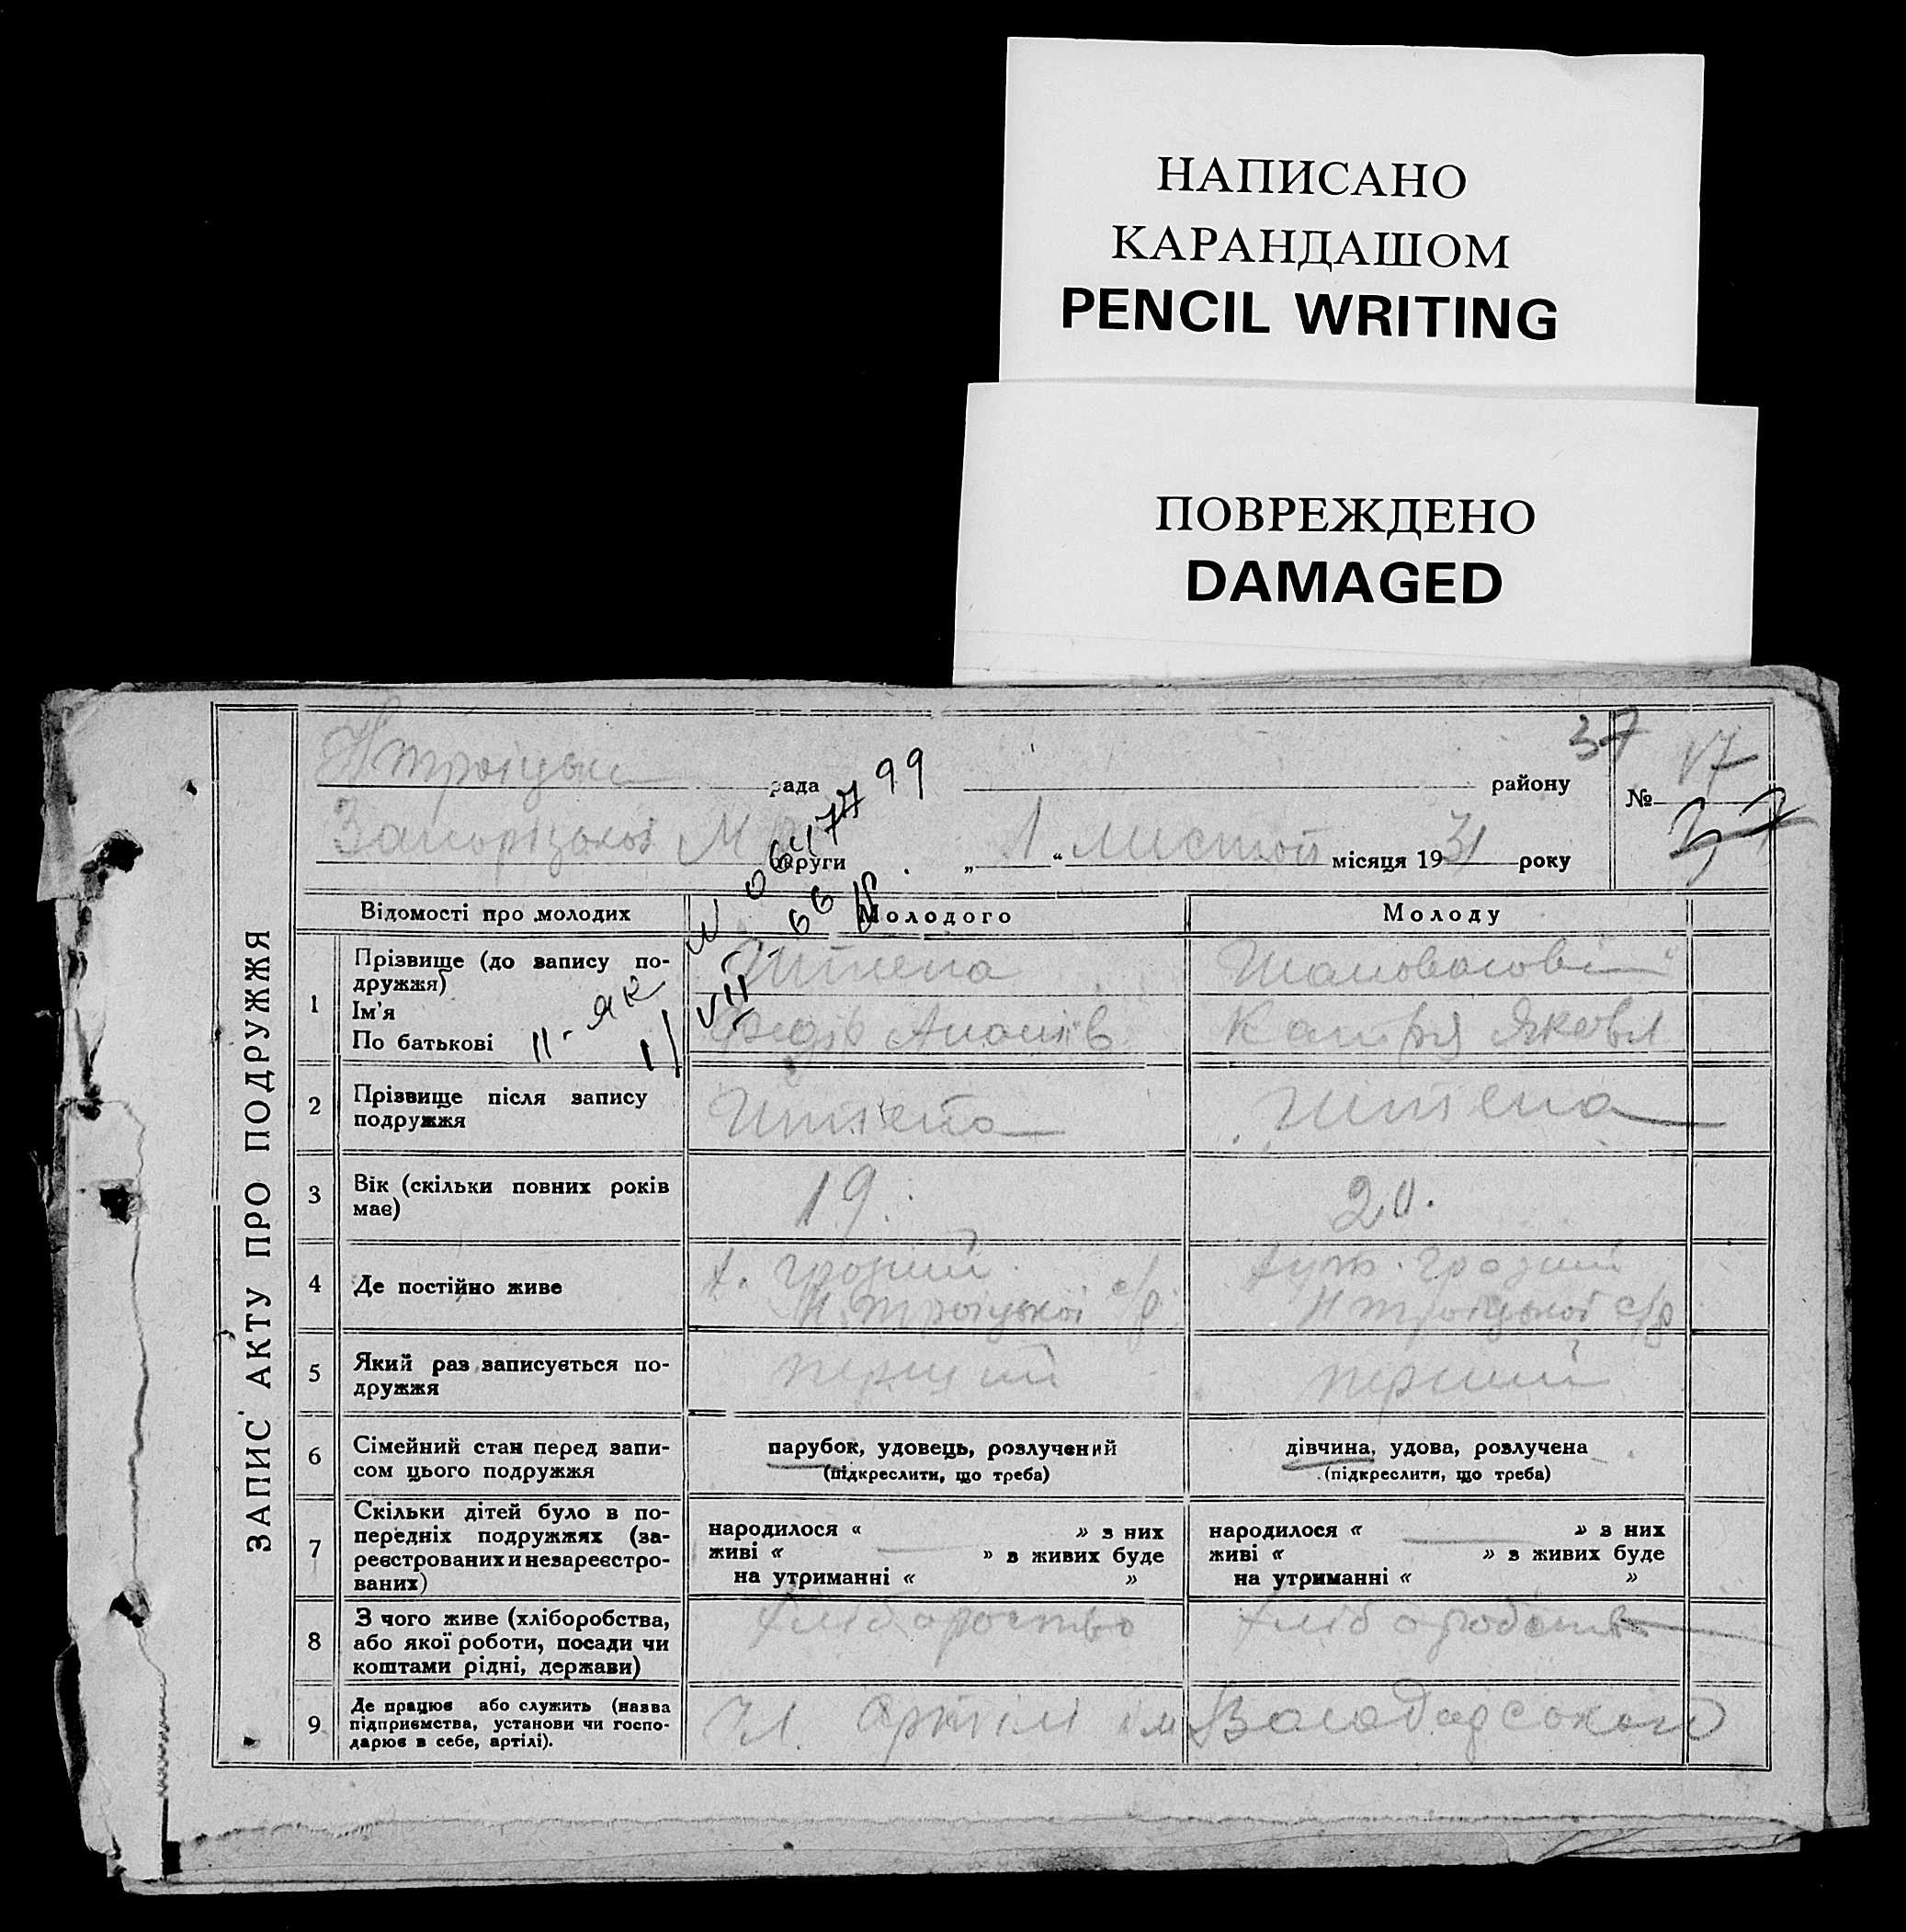 НАПИСАНО
КАРАНДАШОМ
PENCIL WRITING
ПОВРЕЖДЕНО
DAMAGED
ЗАПИС АКТУ ПРО ПОДРУЖЖЯ
37
рада
району
№ 17
37
Запорізької М
округи „ 1 “ листоп місяця 1931 року
Відомості про молодих Молодого Молоду
1 Прізвище (до запису по-
дружжя)
Ім'я
По батькові
Штепа
Федір
Катря Яковл
2 Прізвище після запису
подружжя
Штепа Штепа
3 Вік (скільки повних років
має)
19. 20.
4 Де постійно живе
х. Грозний
Н. Троіцької с/р
хут. Грозний
Н Троіцької с/р
5 Який раз записується по-
дружжя
перший перший
6 Сімейний стан перед запи-
сом цього подружжя
парубок, удовець, розлучений
(підкреслити, що треба)
дівчина, удова, розлучена
(підкреслити, що треба)
7 Скільки дітей було в по-
передніх подружжях (за-
реєстрованих и незареєстро-
ваних)
народилося « » з них
живі « » з живих буде
на утриманні « »
народилося « » з них
живі « » з живих буде
на утриманні « »
8 З чого живе (хліборобства,
або якої роботи, посади чи
коштами рідні, держави)
хлібороство хліборобство
9 Де працює або служить (назва
підприємства, установи чи госпо-
дарює в себе, артілі).
Чл. артілі ім Володарського